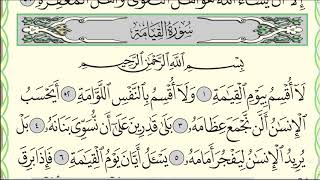 إلا أن يشاء الله هو أهل التقوى وأهل المغفرة
سورة القيامة
بسم الله الرحمن الرحيم
لا أقسم بيوم القيامة ١ ولا أقسم بالنفس اللوامة ٢ أيحسب
الإنسان ألن نجمع عظامه ٣ بلى قادرين على أن نسوي بنانه ٤ بل
يريد الإنسان ليفجر أمامه ٥ يسئل أيان يوم القيامة ٦ فإذا برق